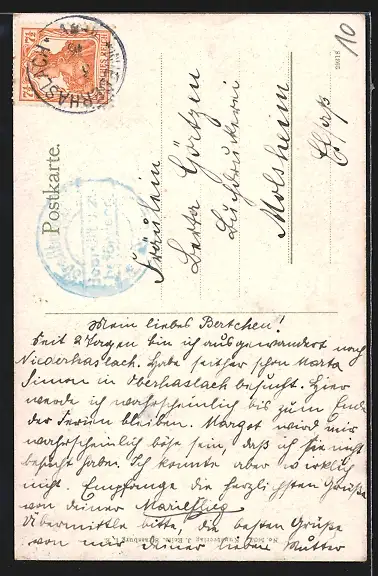 10
7½ DEUTSCHES REICH 7½
HASLACH
39618
Postkarte.
Fräulein
Berta Götzen
Buchdruckerei
Molsheim
Elsaß
Mein liebes Bertchen!
Seit 2 Tagen bin ich ausgewandert nach
Niederhaslach. Habe seither schon Marta
Simon in Oberhaslach besucht. Hier
werde ich wahrscheinlich bis zum Ende
der Ferien bleiben. Margot wird mir
wahrscheinlich böse sein, daß ich sie nicht
besucht habe. Ich konnte aber wirklich
nicht. Empfange die herzlichsten Grüße
von deiner
Übermittle bitte, die besten Grüße
von mir deiner lieben Mutter
Kunstverlag J. Strassburg i. E.